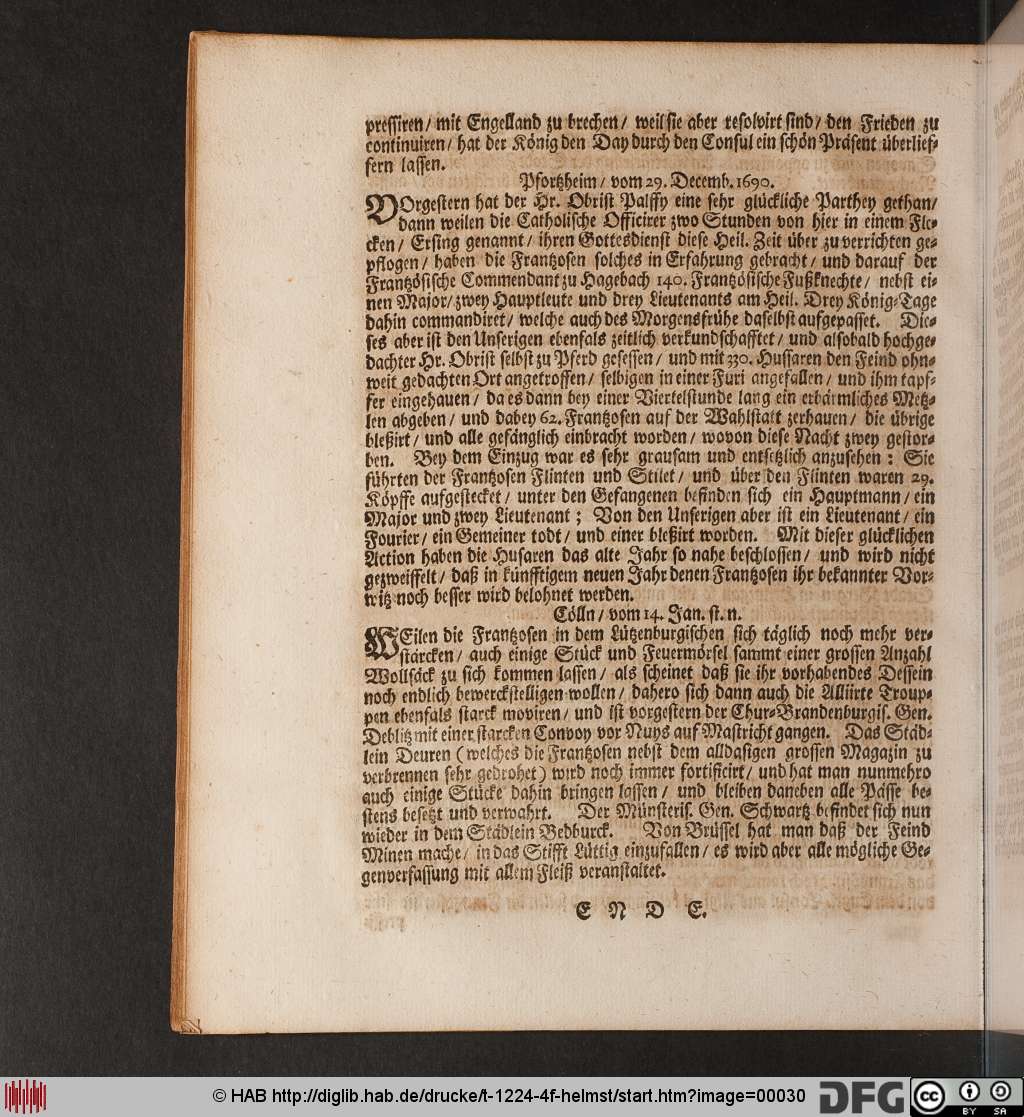 pressiren / mit Engelland zu brechen / weil sie aber resolvirt sind / den Frieden zu
continuiren / hat der König den Day durch den Consul ein schön Präsent überlief-
fern lassen.
Pfortzheim / vom 29. Decemb. 1690.
VOrgestern hat der Hr. Obrist Palffy eine sehr glückliche Parthey gethan /
dann weilen die Catholische Officirer zwo Stunden von hier in einem Fle-
cken / Ersing genannt / ihren Gottesdienst diese Heil. Zeit über zu verrichten ge-
pflogen / haben die Frantzosen solches in Erfahrung gebracht / und darauf der
Frantzösische Commendant zu Hagebach 140. Frantzösische Fußknechte / nebst ei-
nen Major / zwey Hauptleute und drey Lieutenants am Heil. Drey König-Tage
dahin commandiret / welche auch des Morgensfrühe daselbst aufgepasset. Die-
ses aber ist den Unserigen ebenfals zeitlich verkundschafftet / und alsobald hochge-
dachter Hr. Obrist selbst zu Pferd gesessen / und mit 330. Hussaren den Feind ohn-
weit gedachten Ort angetroffen / selbigen in einer Furi angefallen / und ihm tapf-
fer eingehauen / da es dann bey einer Viertelstunde lang ein erbärmliches Metz-
len abgeben / und dabey 62. Frantzosen auf der Wahlstatt zerhauen / die übrige
bleßirt / und alle gefänglich einbracht worden / wovon diese Nacht zwey gestor-
ben. Bey dem Einzug war es sehr grausam und entsetzlich anzusehen : Sie
führten der Frantzosen Flinten und Stilet / und über den Flinten waren 29.
Köpffe aufgestecket / unter den Gefangenen befinden sich ein Hauptmann / ein
Major und zwey Lieutenant ; Von den Unserigen aber ist ein Lieutenant / ein
Fourier / ein Gemeiner todt / und einer bleßirt worden. Mit dieser glücklichen
Action haben die Husaren das alte Jahr so nahe beschlossen / und wird nicht
gezweiffelt / daß in künfftigem neuen Jahr denen Frantzosen ihr bekannter Vor-
witz noch besser wird belohnet werden.
Cölln / vom 14. Jan. st. n.
WEilen die Frantzosen in dem Lützenburgischen sich täglich noch mehr ver-
stärcken / auch einige Stück und Feuermörsel sammt einer grossen Anzahl
Wollsäck zu sich kommen lassen / als scheinet daß sie ihr vorhabendes Dessein
noch endlich bewerckstelligen wollen / dahero sich dann auch die Alliirte Troup-
pen ebenfals starck moviren / und ist vorgestern der Chur-Brandenburgis. Gen.
Deblitz mit einer starcken Convoy vor Nuys auf Mastricht gangen. Das Städ-
lein Deuren ( welches die Frantzosen nebst dem alldasigen grossen Magazin zu
verbrennen sehr gedrohet ) wird noch immer fortificirt / und hat man nunmehro
auch einige Stücke dahin bringen lassen / und bleiben daneben alle Pässe be-
stens besetzt und verwahrt. Der Münsteris. Gen. Schwartz befindet sich nun
wieder in dem Städlein Bedburck. Von Brüssel hat man daß der Feind
Minen mache / in das Stifft Lüttig einzufallen / es wird aber alle mögliche Ge-
genverfassung mit allem Fleiß veranstaltet.
E N D E.
© HAB http://diglib.hab.de/drucke/t-1224-4f-helmst/start.htm?image=00030
DFG
cc
BY SA